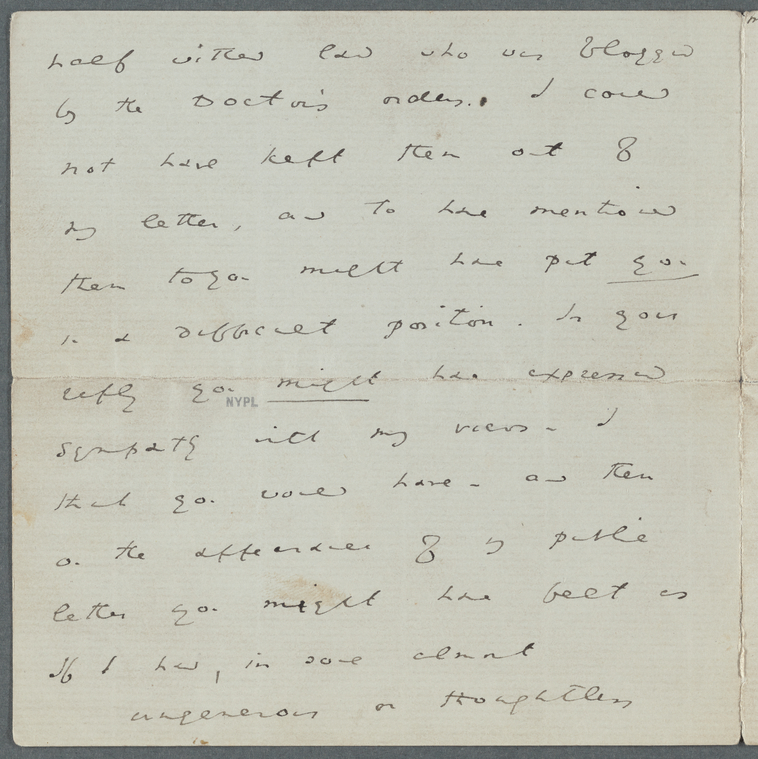 half witted lad who was flogged
by the Doctor's orders. I could
not have kept them out of
my letter, and to have mentioned
them to you might have put you
in a difficult position. In your
reply you might have expressed
NYPL
sympathy with my views - I
think you would have - and then
on the appearance of my public
letter you might have felt as
if I had, in some almost
ungenerous or thoughtless